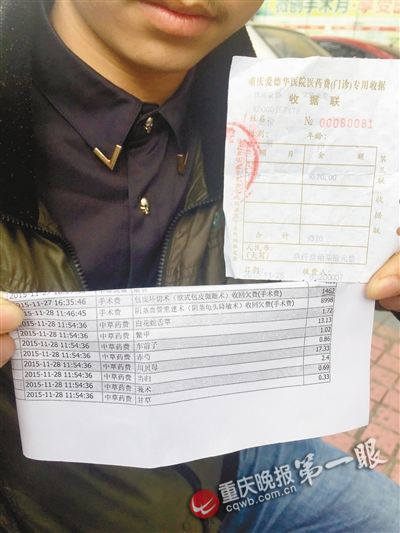 重庆爱德华医院医药费(门诊)专用收据
收据联
№ 00080081
姓名
性别：
年龄：
项目
金额
9370.00
第三联
收据联
合计
9370
人民币
(大写)
收费人
1462
2015-11-27 16:35:46 手术费 包皮环切术（欧式包皮微雕术）收回欠费(手术费) 8998
2015-11-28 11:46:45 手术费 阴茎血管重建术（阴茎龟头降敏术）收回欠费(手术费) 1.72
2015-11-28 11:54:36 中草药费 白花蛇舌草 13.13
2015-11-28 11:54:36 中草药费 鳖甲 1.02
2015-11-28 11:54:36 中草药费 车前子 0.86
2015-11-28 11:54:36 中草药费 赤芍 17.33
2015-11-28 11:54:36 中草药费 川贝母 2.4
2015-11-28 11:54:36 中草药费 当归 0.69
2015-11-28 11:54:36 中草药费 莪术 0.33
2015-11-28 11:54:36 中草药费 甘草
重庆晚报 第一眼
cqwb.com.cn